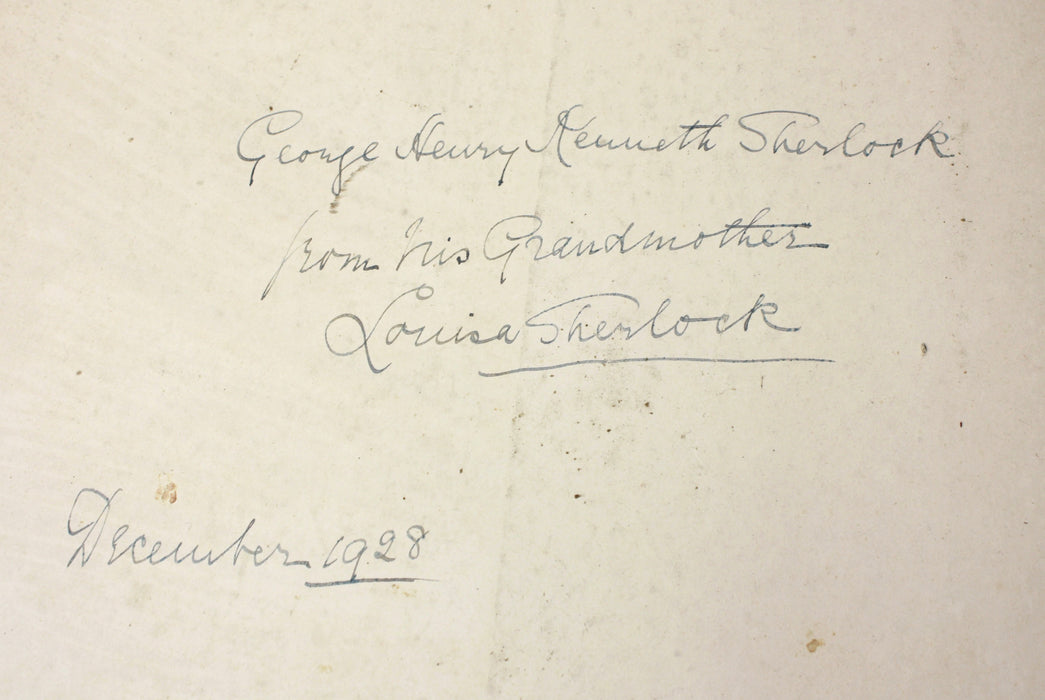 George Henry Kenneth Sherlock
from his Grandmother
Louisa Sherlock
December 1928